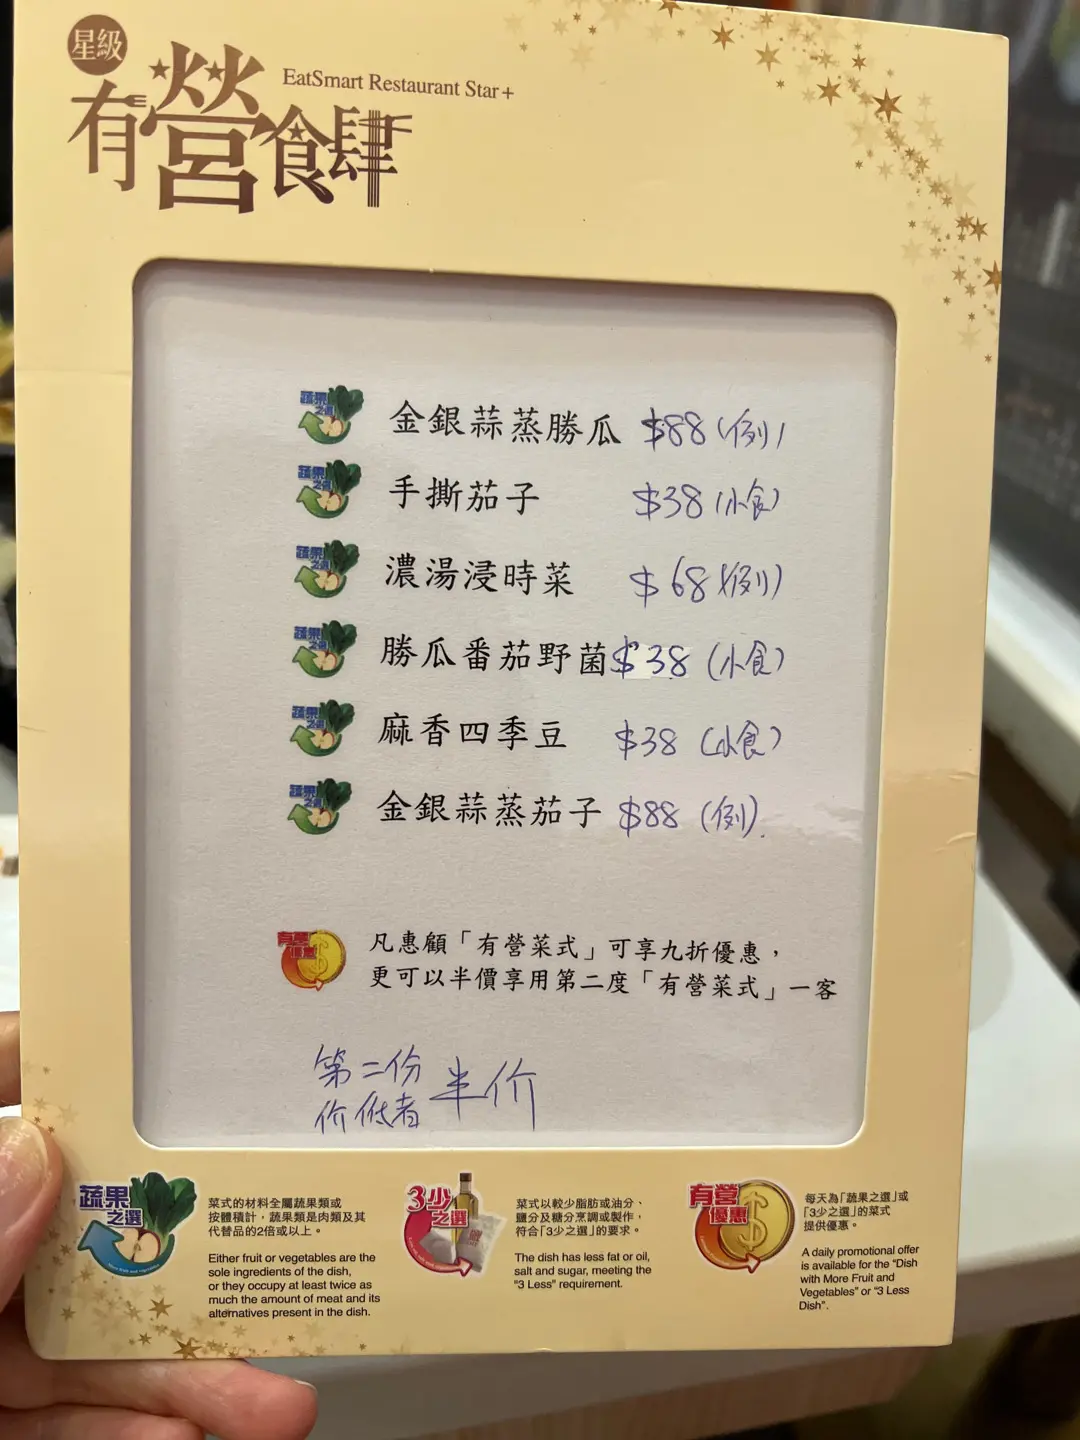 星級
有營食肆
EatSmart Restaurant Star+
蔬果之選 金銀蒜蒸勝瓜 $88 (例)
蔬果之選 手撕茄子 $38 (小食)
蔬果之選 濃湯浸時菜 $68 (例)
蔬果之選 勝瓜番茄野菌 $38 (小食)
蔬果之選 麻香四季豆 $38 (小食)
蔬果之選 金銀蒜蒸茄子 $88 (例)
有營優惠
凡惠顧「有營菜式」可享九折優惠，
更可以半價享用第二度「有營菜式」一客
第二份
价低者 半价
蔬果
之選
菜式的材料全屬蔬果類或
按體積計，蔬果類是肉類及其
代替品的2倍或以上。
Either fruit or vegetables are the
sole ingredients of the dish,
or they occupy at least twice as
much the amount of meat and its
alternatives present in the dish.
3少
之選
菜式以較少脂肪或油分、
鹽分及糖分烹調或製作，
符合「3少之選」的要求。
The dish has less fat or oil,
salt and sugar, meeting the
"3 Less" requirement.
有營
優惠
每天為「蔬果之選」或
「3少之選」的菜式
提供優惠。
A daily promotional offer
is available for the "Dish
with More Fruit and
Vegetables" or "3 Less
Dish".